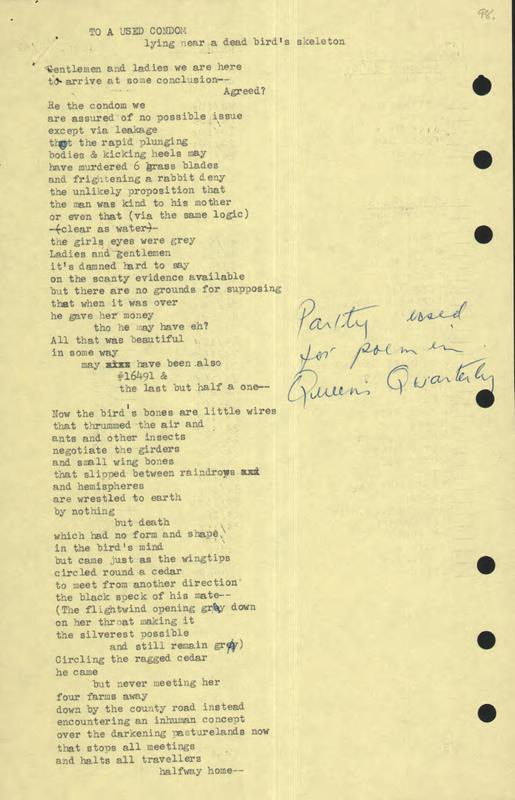 98.
TO A USED CONDOM
lying near a dead bird's skeleton
Gentlemen and ladies we are here
to arrive at some conclusion--
Agreed?
Re the condom we
are assured of no possible issue
except via leakage
that the rapid plunging
bodies & kicking heels may
have murdered 6 grass blades
and frightening a rabbit deny
the unlikely proposition that
the man was kind to his mother
or even that (via the same logic)
-(clear as water)-
the girls eyes were grey
Ladies and gentlemen
it's damned hard to say
on the scanty evidence available
but there are no grounds for supposing
that when it was over
he gave her money
tho he may have eh?
All that was beautiful
in some way
may xixx have been also
#16491 &
the last but half a one--
Partly used
for poem in
Queen's Quarterly
Now the bird's bones are little wires
that thrummed the air and
ants and other insects
negotiate the girders
and small wing bones
that slipped between raindrops xxx
and hemispheres
are wrestled to earth
by nothing
but death
which had no form and shape
in the bird's mind
but came just as the wingtips
circled round a cedar
to meet from another direction
the black speck of his mate--
(The flightwind opening grey down
on her throat making it
the silverest possible
and still remain grey)
Circling the ragged cedar
he came
but never meeting her
four farms away
down by the county road instead
encountering an inhuman concept
over the darkening pasturelands now
that stops all meetings
and halts all travellers
halfway home--